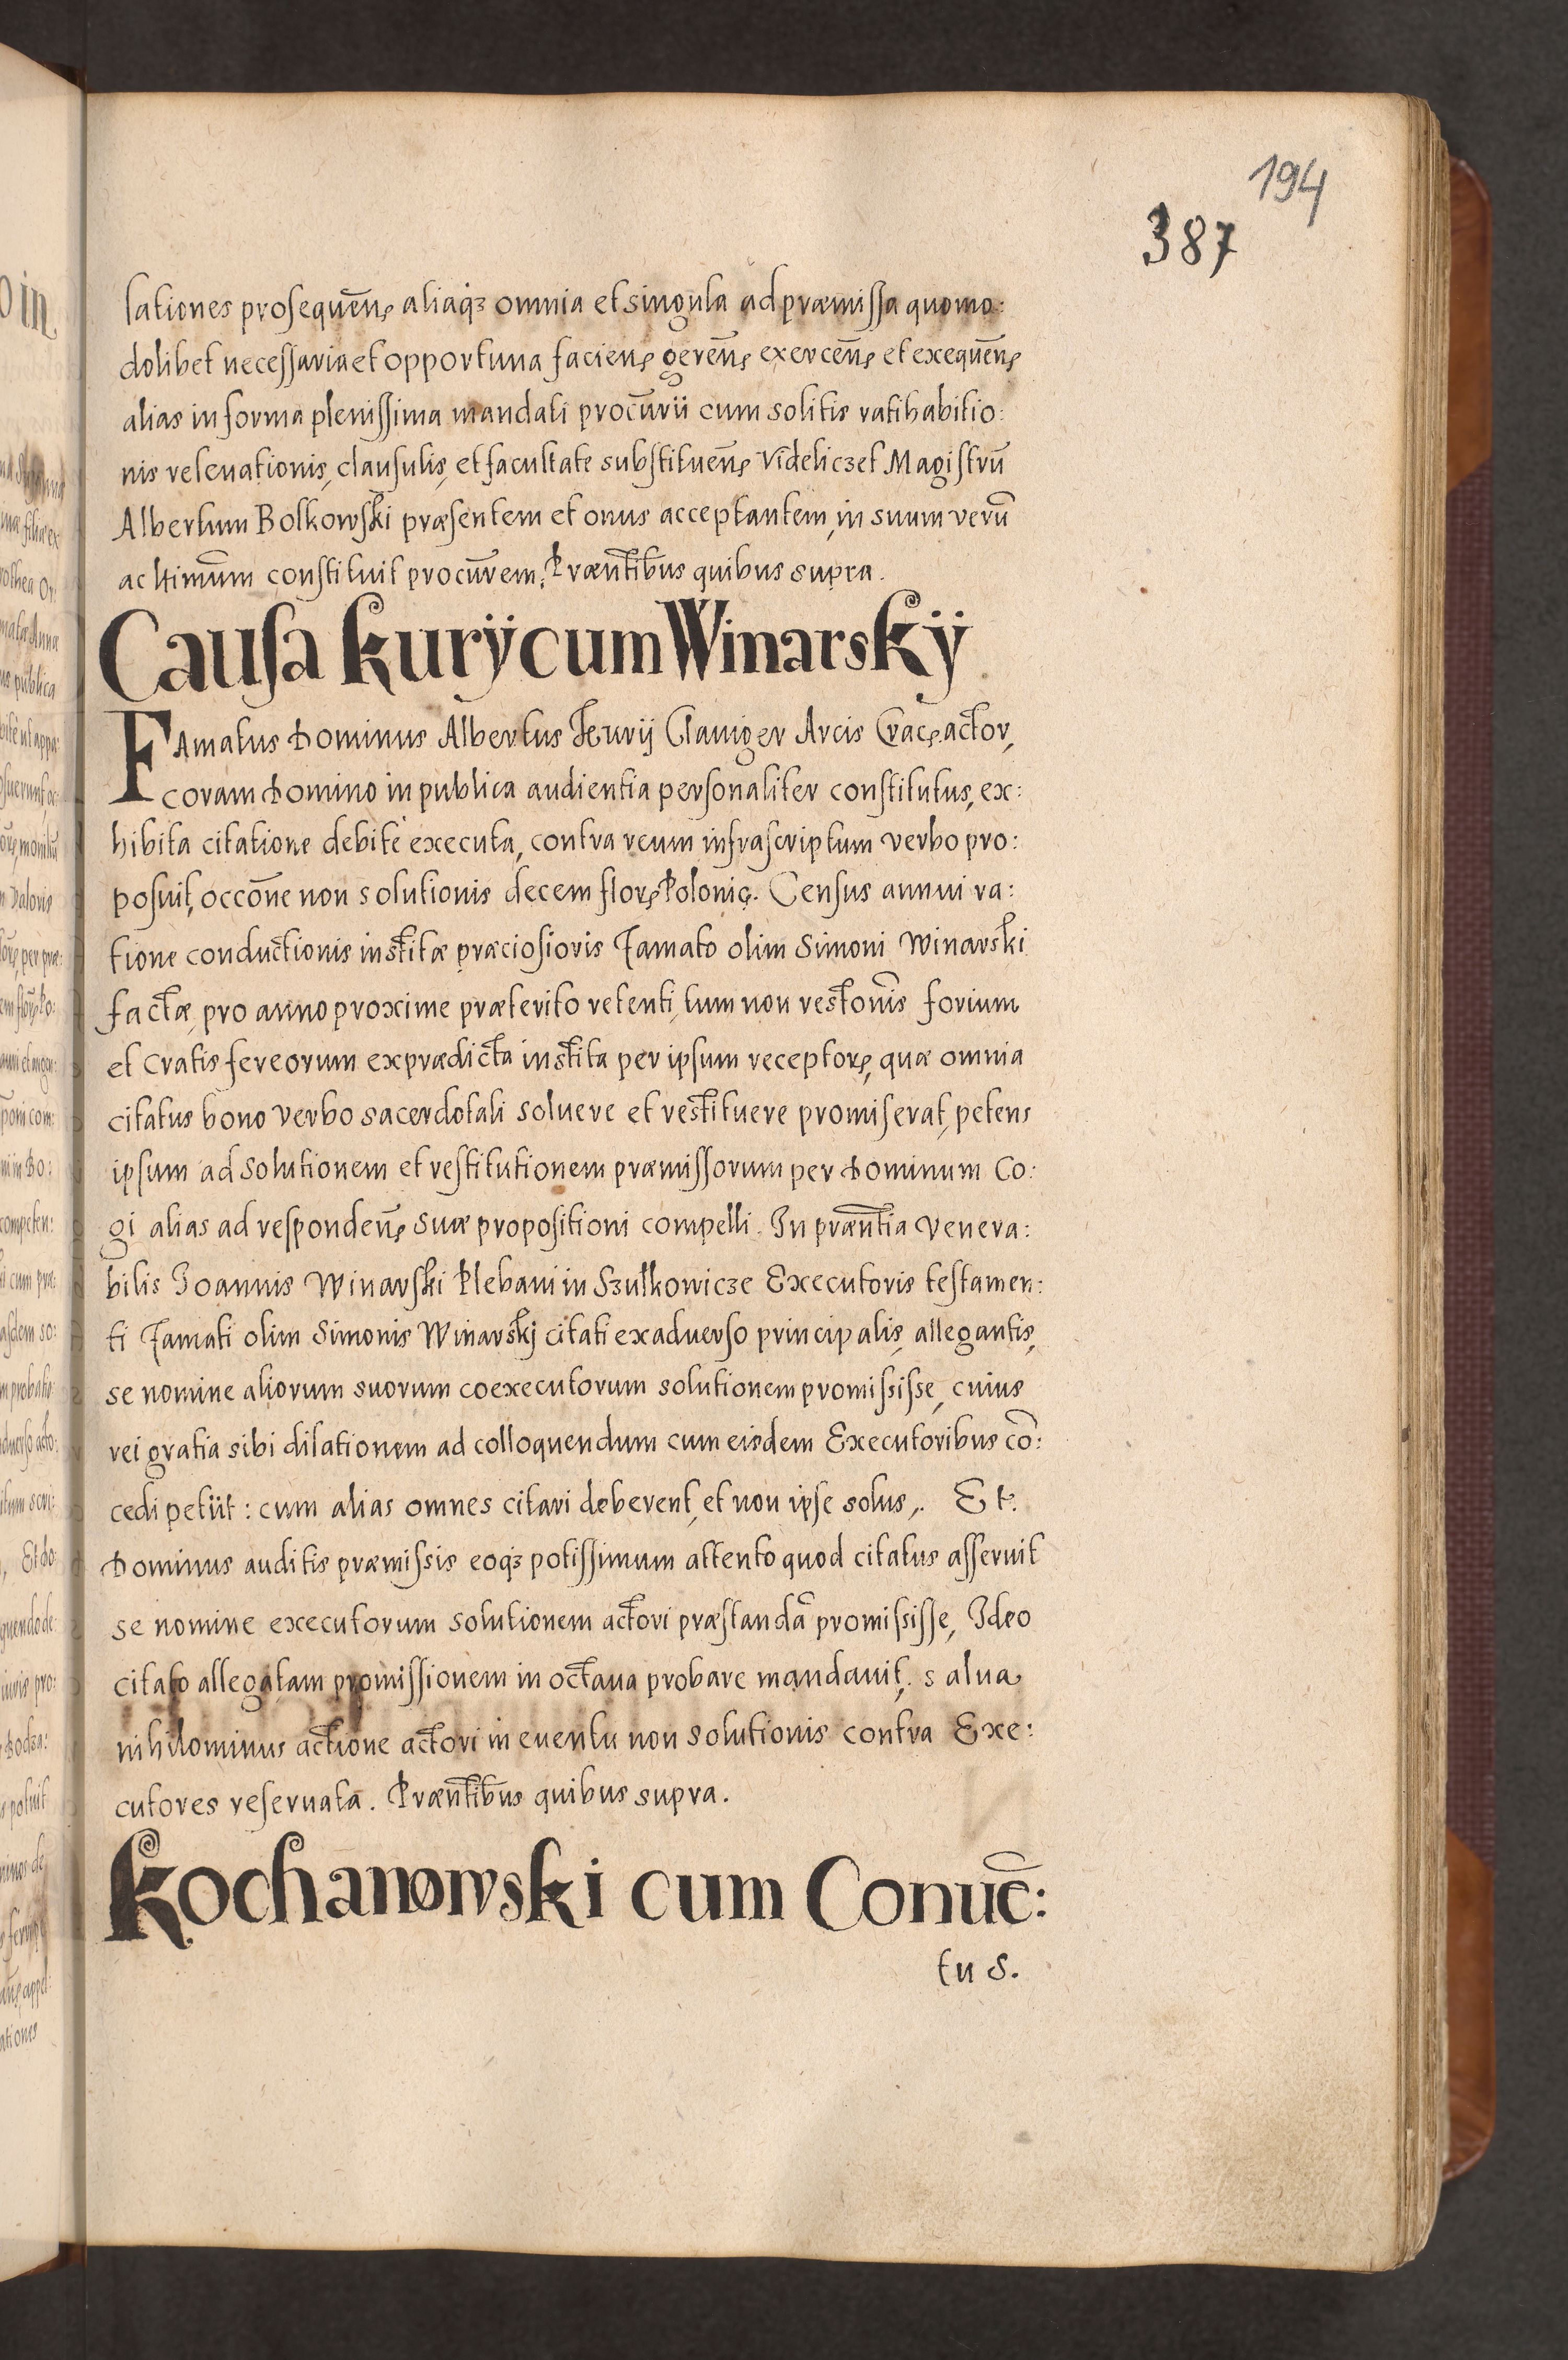 194
387
lationes prosequen̄ę aliaq̃ꝫ omnia et singula ad præmissa quomo:
dolibet necessaria et opportuna facienę geren̄ę exercen̄ę et exequen̄ę
alias in forma plenissima mandati procūrii cum solitis ratihabitio:
nis releuationis, clausulis, et facultate substituen̄ę Videliczet Magistrū
Albertum Bolkowski præsentem et onus acceptantem, in suum verū
ac ltimūm constituit procūrem, Præntĩbus quibus supra.
Causa Kurÿ cum Winarskÿ
Famatus Dominus Albertus Kurij Clauiger Arcis Cracę. actor,
coram Domino in publica audientia personaliter constitutus, ex:
hibita citatione debitè executa, contra reum infrascriptum verbo pro:
posuit, occōne non solutionis decem florę Polonię. Census annui ra:
tione conductionis institæ præciosioris Famato olim Simoni Winarski
factæ, pro anno proxime præterito retenti, tum non restōnis forium
et cratis fereorum ex prædicta instita per ipsum receptorę, quæ omnia
citatus bono verbo sacerdotali soluere et restituere promiserat, petens
ipsum ad solutionem et restitutionem præmissorum per Dominum Co:
gi alias ad responden̄ę suæ propositioni compelli. In præñtia Venera:
bilis Joannis Winarski Plebani in Szulkowicze Executoris testamen:
ti Famati olim Simonis Winarskj citati ex aduerso principalis, allegantis,
se nomine aliorum suorum coexecutorum solutionem promississe, cuius
rei gratia sibi dilationem ad colloquendum cum eisdem Executoribus cō:
cedi petiit: cum alias omnes citari deberent, et non ipse solus,. Et.
Dominus auditis præmissis eoq̃ꝫ potissimum attento quod citatus asseruit
se nomine executorum solutionem actori præstandā promississe, Ideo
citato allegatam promissionem in octaua probare mandauit,. salua
nihilominus actione actori in euentu non solutionis contra Exe:
cutores reseruata. Præntĩbus quibus supra.
Kochanowski cum Conuc̄:
tus.